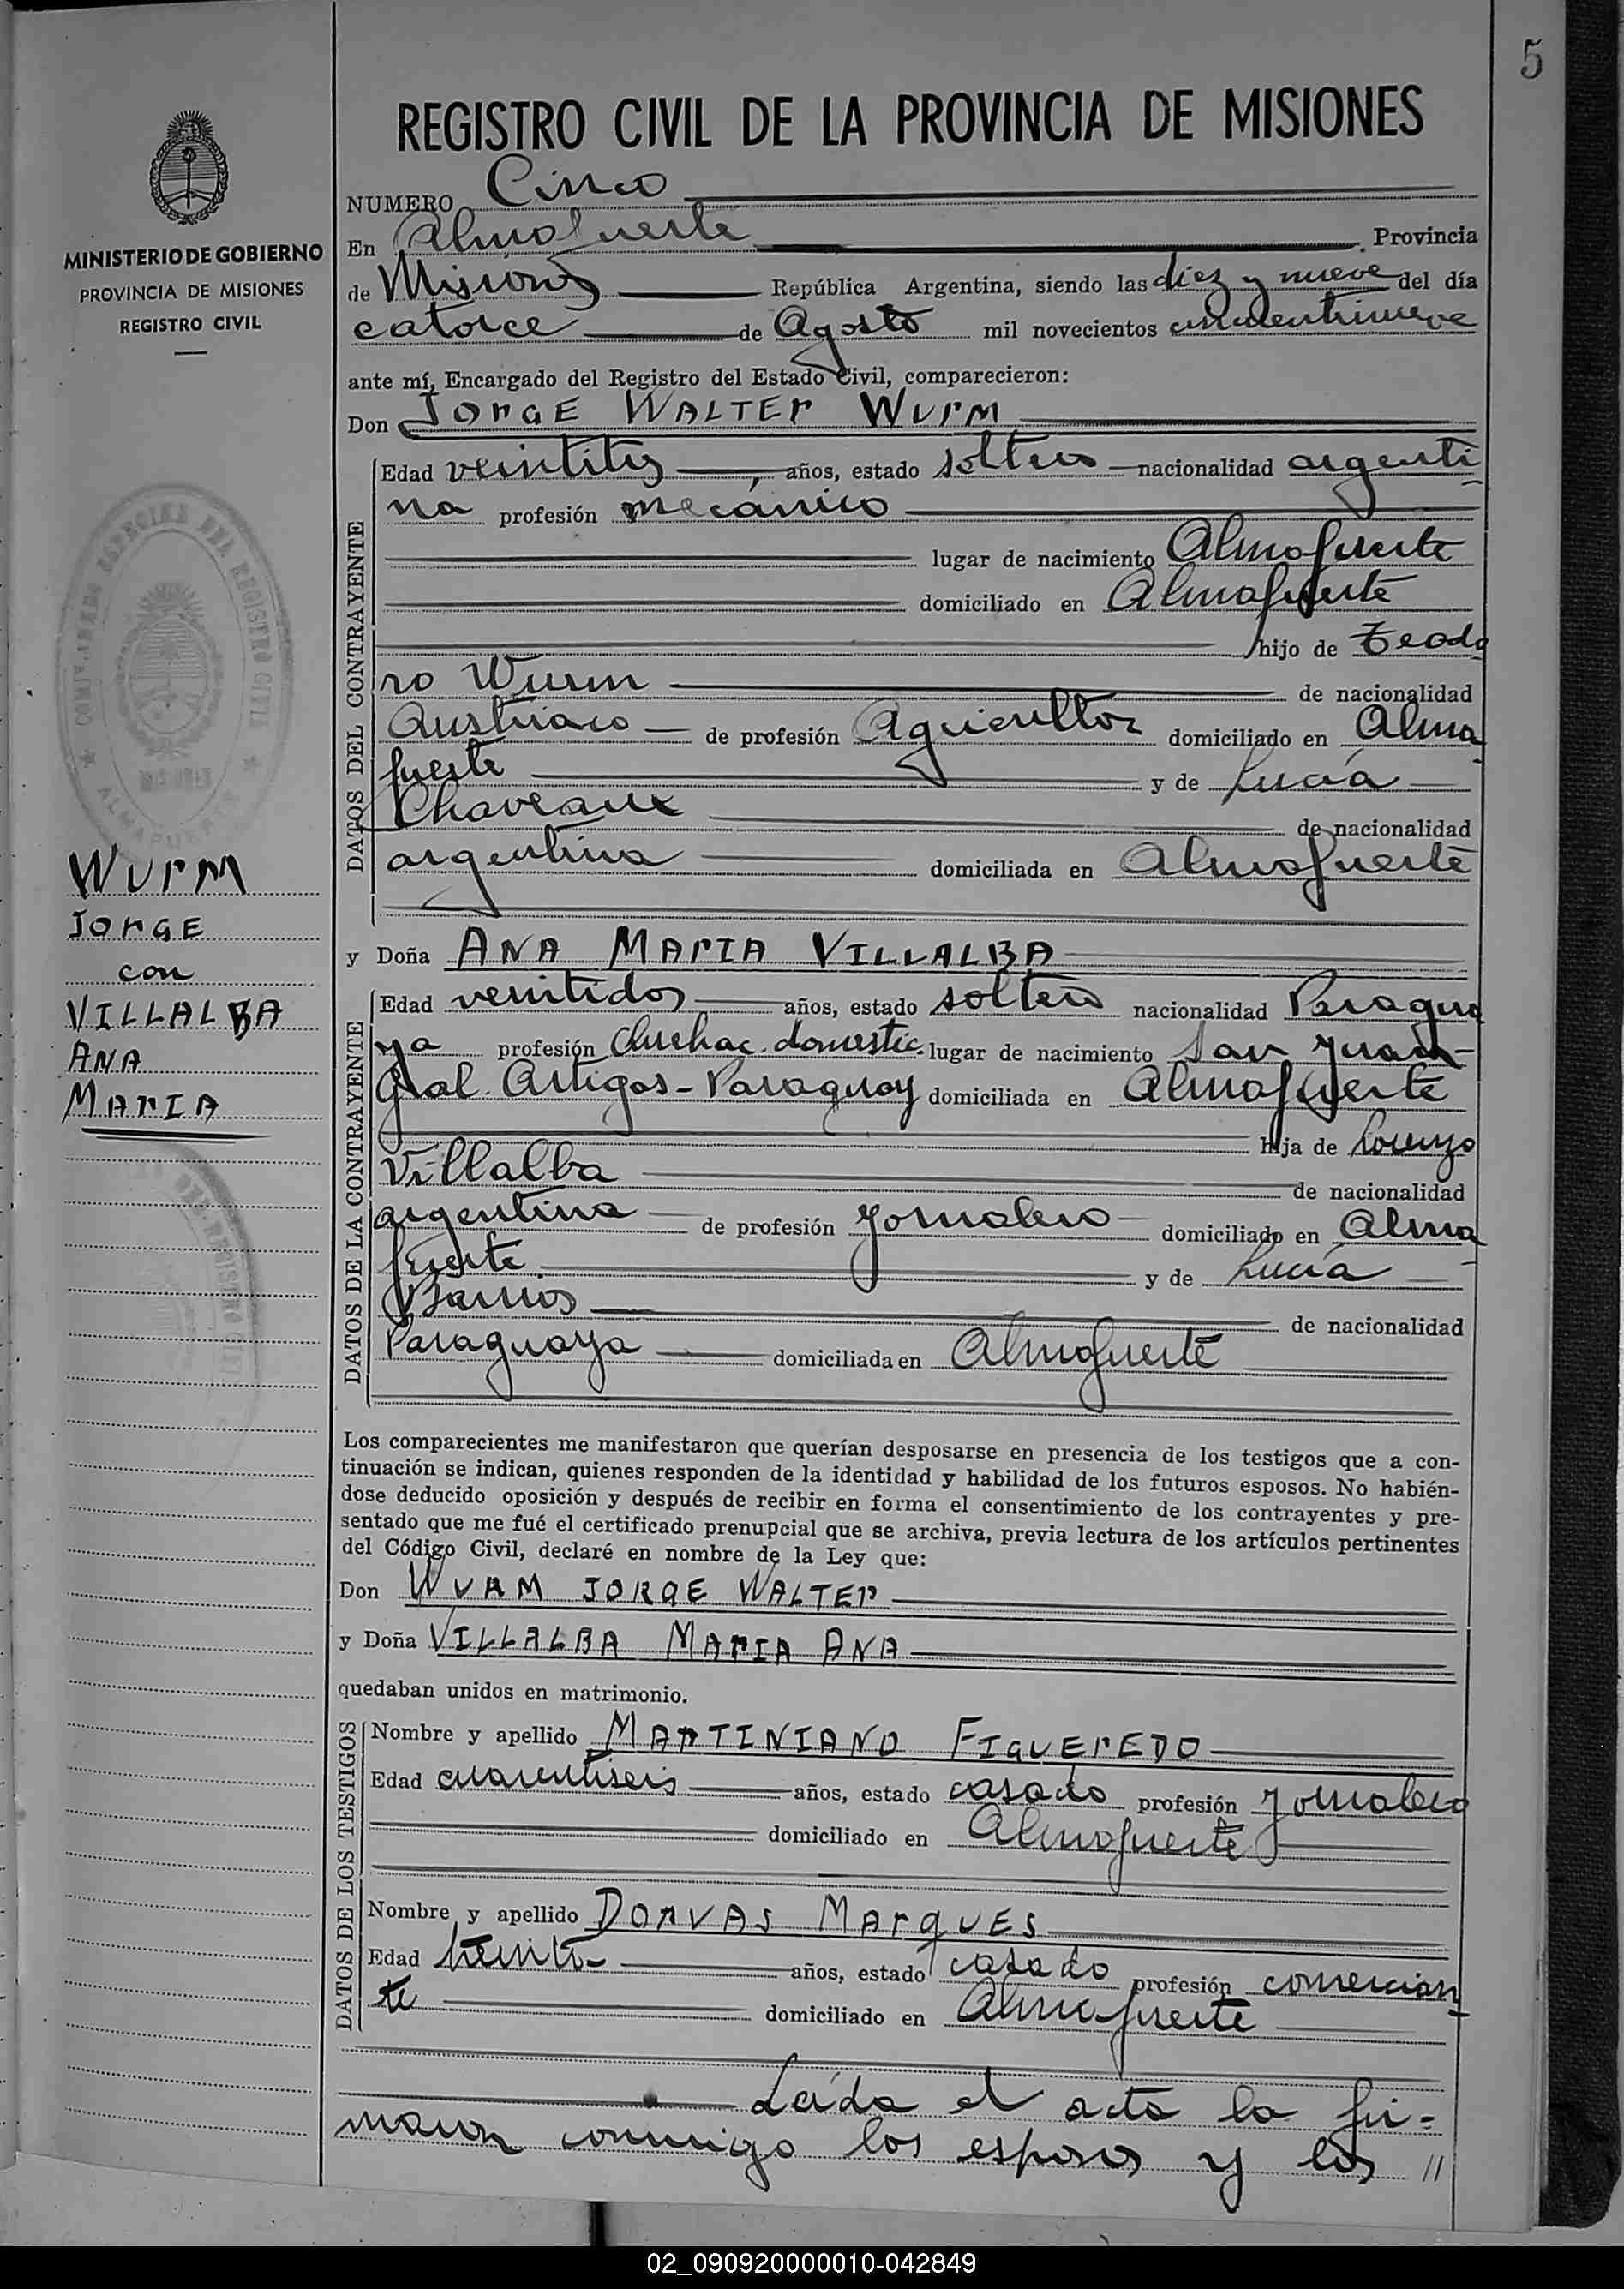 5
REGISTRO CIVIL DE LA PROVINCIA DE MISIONES
MINISTERIO DE GOBIERNO
PROVINCIA DE MISIONES
REGISTRO CIVIL
NUMERO Cinco
En Almafuerte Provincia
de Misiones República Argentina, siendo las diez y nueve del día
catorce de Agosto mil novecientos cincuentinueve
ante mí, Encargado del Registro del Estado Civil, comparecieron:
Don JORGE WALTER WURM
DATOS DEL CONTRAYENTE
Edad años, estado soltero nacionalidad argenti
na profesión mecánico
lugar de nacimiento Almafuerte
domiciliado en Almafuerte
hijo de Teodo
ro Wurm de nacionalidad
Austriaco de profesión Agricultor domiciliado en Alma
fuerte y de Lucía
Chaveaux de nacionalidad
argentina domiciliada en Almafuerte
WURM
JORGE
con
VILLALBA
ANA
MARIA
y Doña ANA MARIA VILLALBA
DATOS DE LA CONTRAYENTE
Edad venitidos años, estado soltera nacionalidad Paragua
ya profesión Quehac. domestic. lugar de nacimiento San Juan-
Gral. Artigas-Paraguay domiciliada en Almafuerte
hija de Lorenzo
Villalba de nacionalidad
argentina de profesión Jornalero domiciliado en Alma
fuerte y de Lucía
Barrios de nacionalidad
Paraguaya domiciliada en Almafuerte
Los comparecientes me manifestaron que querían desposarse en presencia de los testigos que a con-
tinuación se indican, quienes responden de la identidad y habilidad de los futuros esposos. No habién-
dose deducido oposición y después de recibir en forma el consentimiento de los contrayentes y pre-
sentado que me fué el certificado prenupcial que se archiva, previa lectura de los artículos pertinentes
del Código Civil, declaré en nombre de la Ley que:
Don WURM JORGE WALTER
y Doña VILLALBA MARIA ANA
quedaban unidos en matrimonio.
DATOS DE LOS TESTIGOS
Nombre y apellido MARTINIANO FIGUEREDO
Edad cuarentiseis años, estado casado profesión Jornalero
domiciliado en Almafuerte
Nombre y apellido DORVAS MARQUES
Edad años, estado casado profesión comercian
te domiciliado en Almafuerte
Leída el acta la fir-
maron conmigo los esposos y los //
02_090920000010-042849